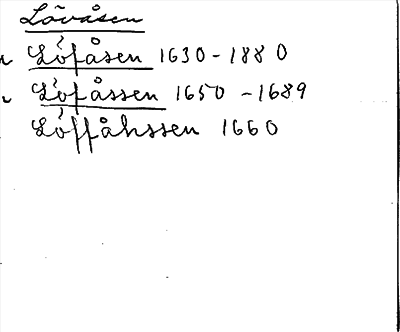 Lövåsen
Löfåsen 1630-1880
Löfåssen 1650-1689
Löffåhssen 1660